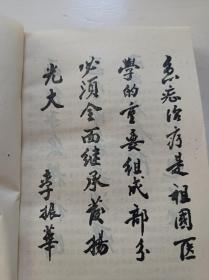 急症治疗是祖國医
學的重要组成部分
必须全面继承發揚
光大 李振華